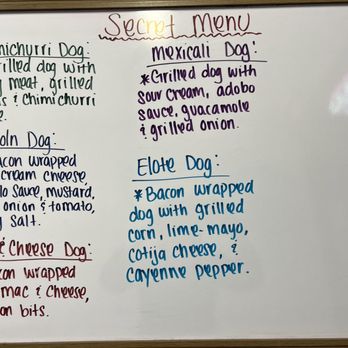 Secret Menu
michurri Dog:
rilled dog with
meat, grilled
s & chimichurri
e.
oln Dog:
acon wrapped
cream cheese,
lo sauce, mustard,
onion & tomato,
y salt.
& Cheese Dog:
con wrapped
mac & cheese,
on bits.
Mexicali Dog:
*Grilled dog with
sour cream, adobo
sauce, guacamole
& grilled onion.
Elote Dog:
*Bacon wrapped
dog with grilled
corn, lime-mayo,
cotija cheese, &
cayenne pepper.